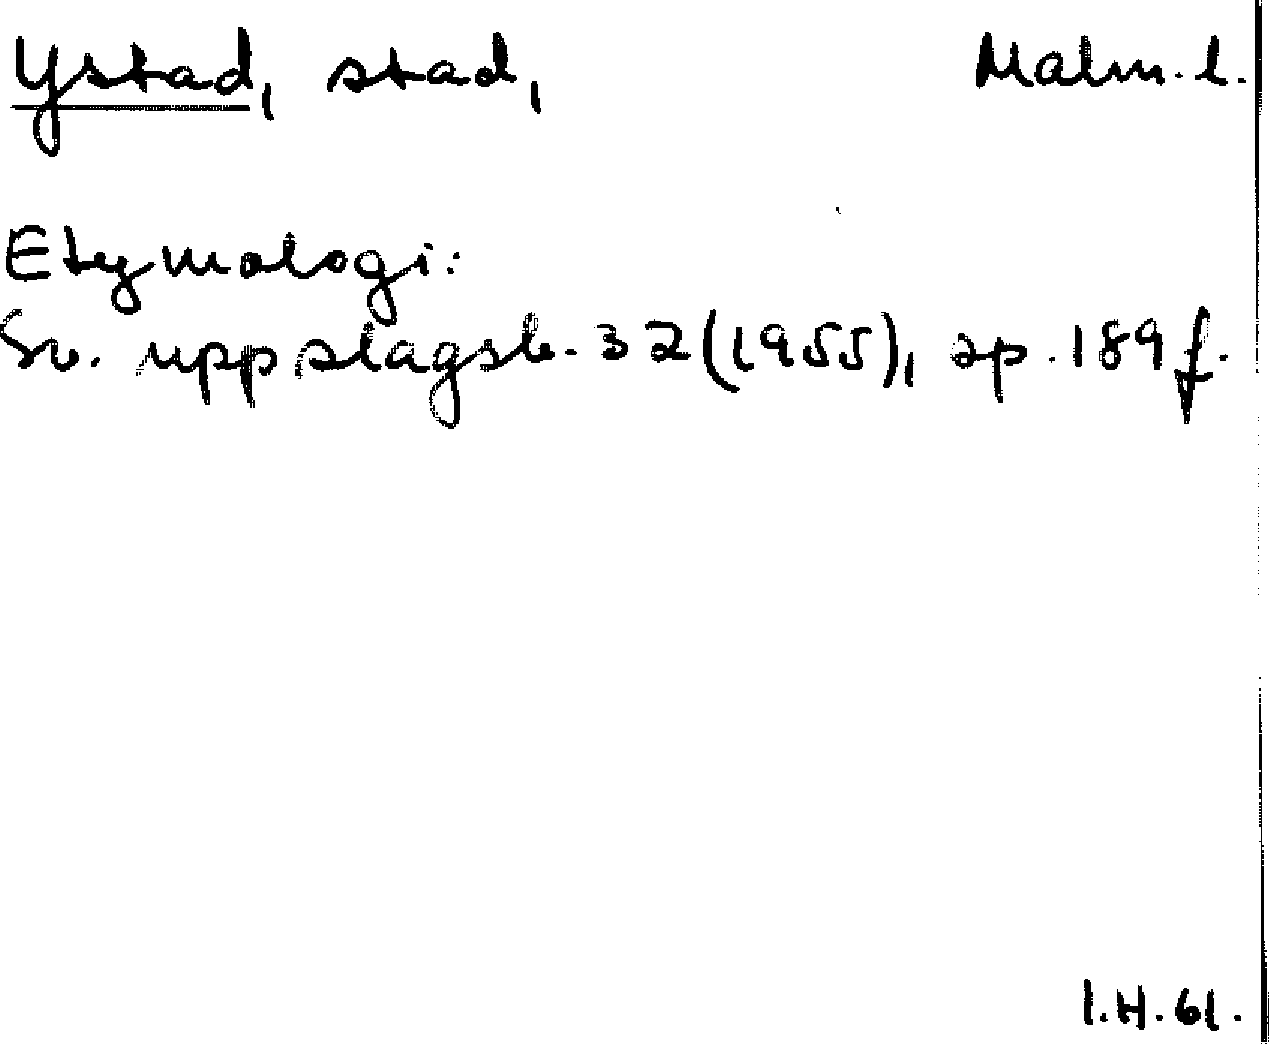 Ystad, stad, Malm. l.
Etymologi:
Sv. uppslagsb. 32 (1955), sp. 189 f.
I.H. 61.